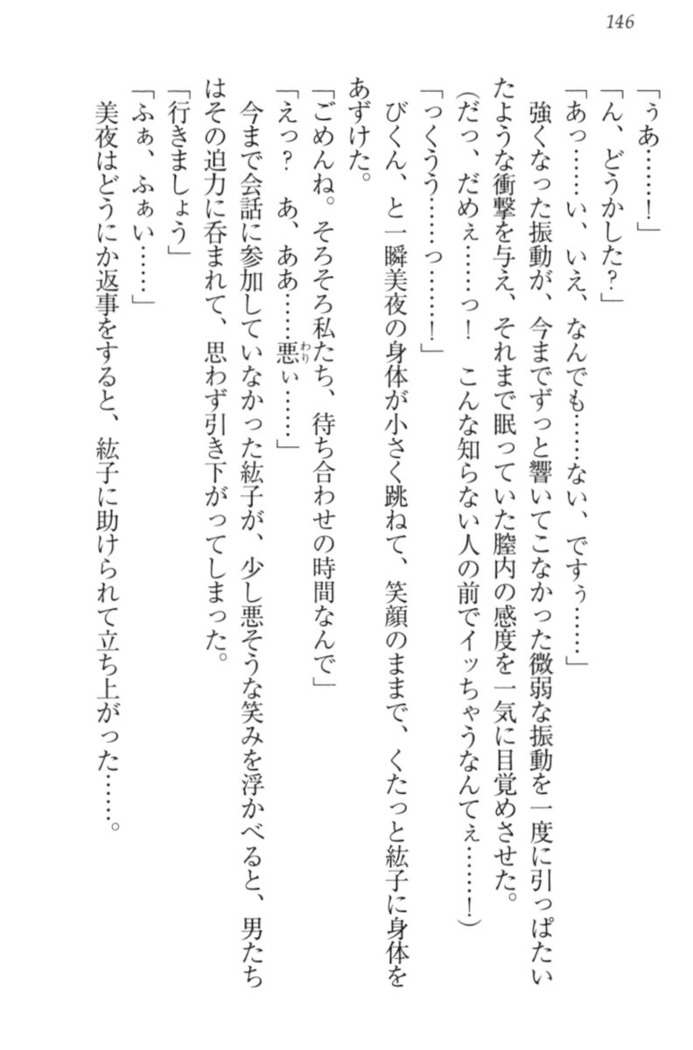 146
「ぅあ……！」
「ん、どうかした？」
「あっ……い、いえ、なんでも……ない、ですぅ……」
　強くなった振動が、今までずっと響いてこなかった微弱な振動を一度に引っぱたい
たような衝撃を与え、それまで眠っていた膣内の感度を一気に目覚めさせた。
（だっ、だめぇ……っ！　こんな知らない人の前でイッちゃうなんてぇ……！）
「っくうう……っ……！」
　びくん、と一瞬美夜の身体が小さく跳ねて、笑顔のままで、くたっと紘子に身体を
あずけた。
「ごめんね。そろそろ私たち、待ち合わせの時間なんで」
「えっ？　あ、ああ……悪ぃ……」
わり
　今まで会話に参加していなかった紘子が、少し悪そうな笑みを浮かべると、男たち
はその迫力に呑まれて、思わず引き下がってしまった。
「行きましょう」
「ふぁ、ふぁい……」
　美夜はどうにか返事をすると、紘子に助けられて立ち上がった……。